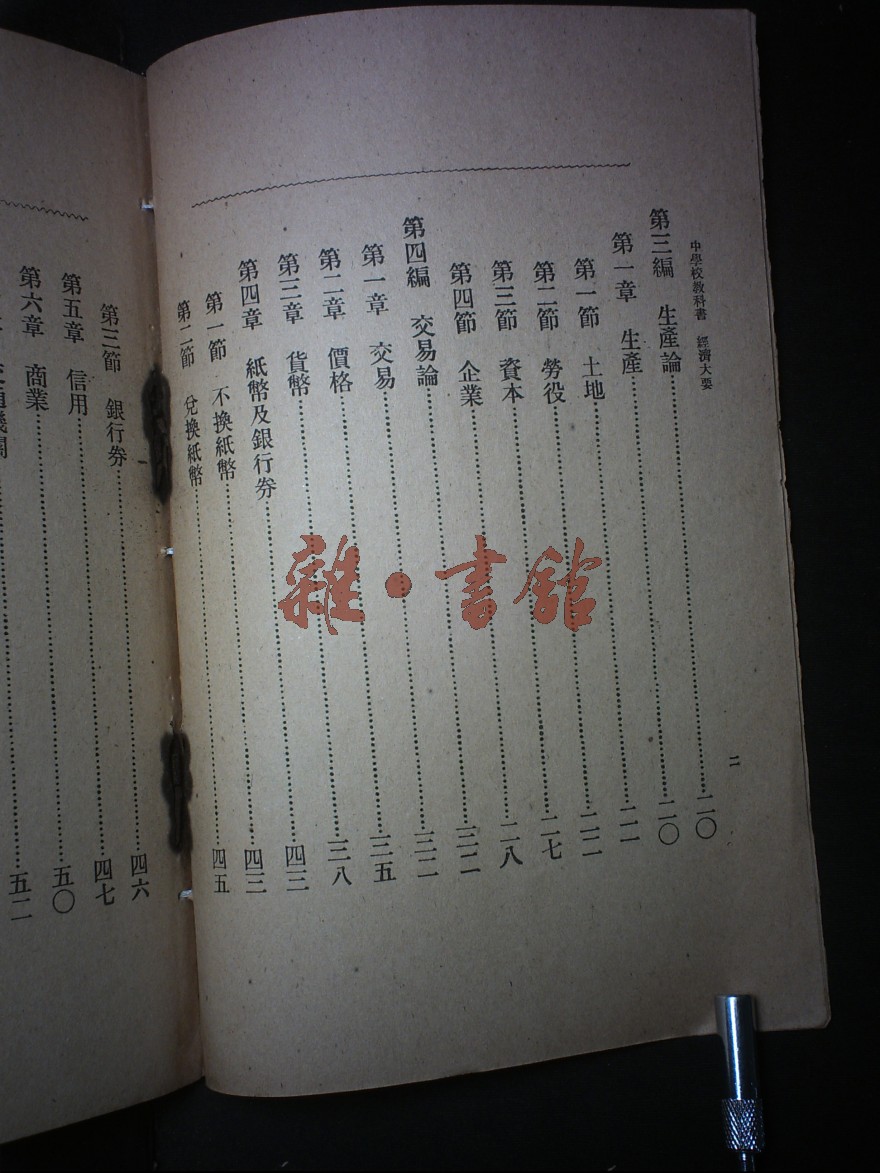 中學校教科書 經濟大要
二
第三編 生產論……二〇
第一章 生產……二〇
第一節 土地……二一
第二節 勞役……二二
第三節 資本……二七
第四節 企業……二八
第四編 交易論……三二
第一章 交易……三二
第二章 價格……三五
第三章 貨幣……三八
第四章 紙幣及銀行券……四三
第一節 不換紙幣……四三
第二節 兌換紙幣……四五
第三節 銀行券……四六
第五章 信用……四七
第六章 商業……五〇
通機關……五二
雜·書館